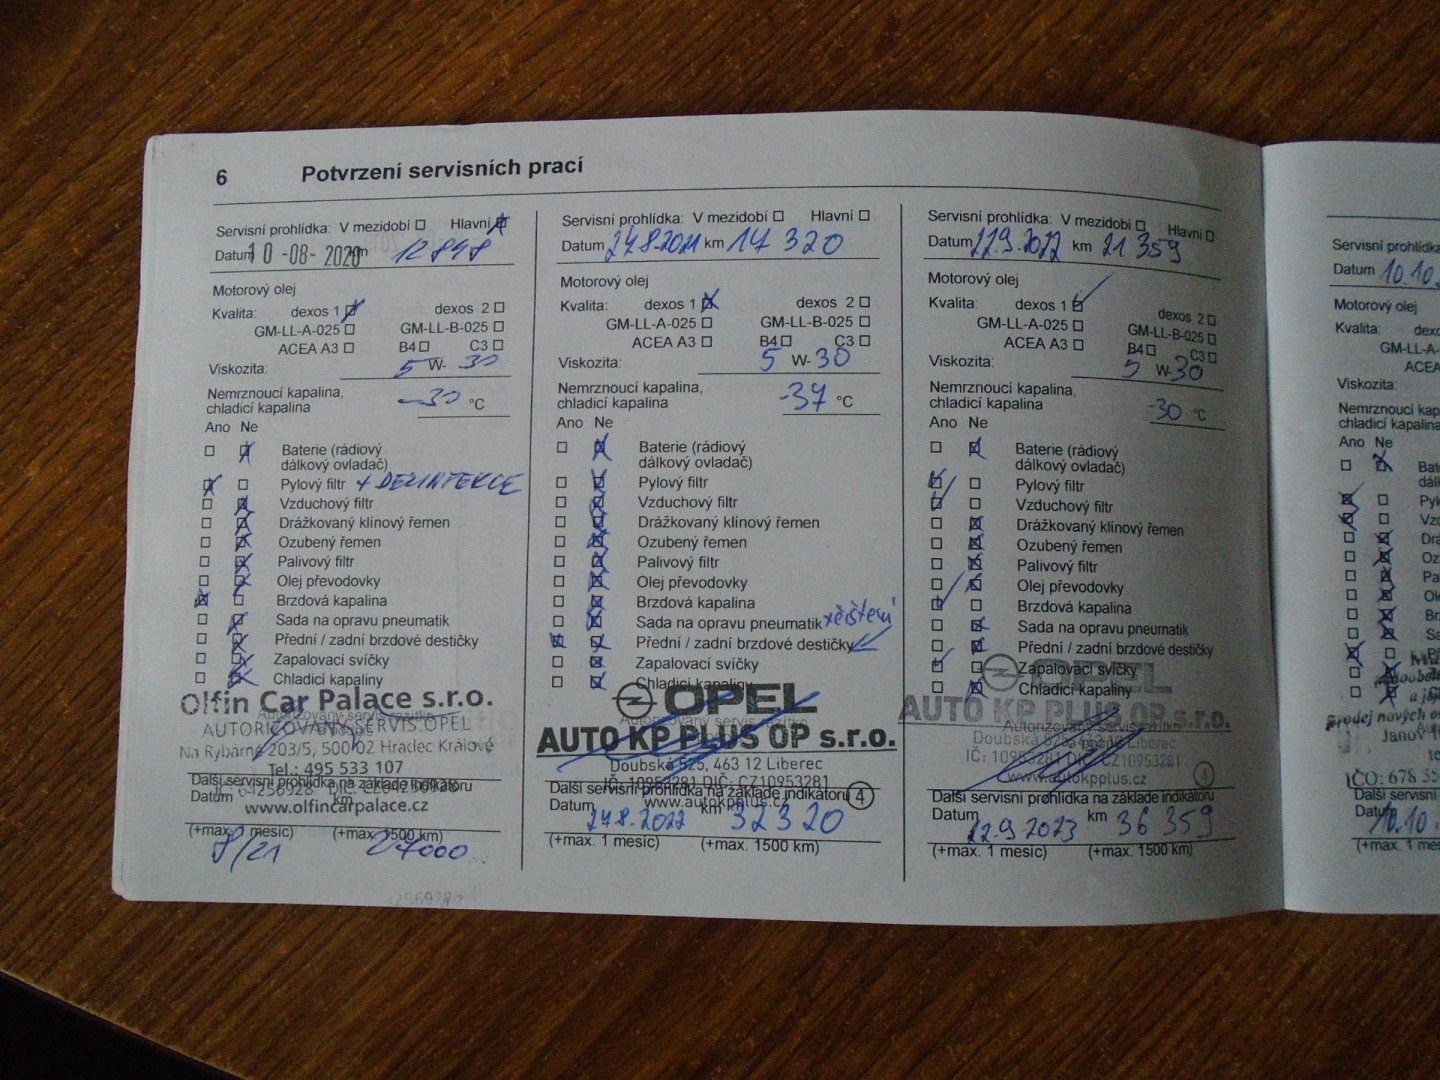 6 Potvrzení servisních prací
Servisní prohlídka: V mezidobí Hlavní
Datum 10 -08- 2020 km 12848
Motorový olej
Kvalita: dexos 1 dexos 2
GM-LL-A-025 GM-LL-B-025
ACEA A3 B4 C3
Viskozita: 5 W- 30
Nemrznoucí kapalina,
chladicí kapalina -30 °C
Ano Ne
Baterie (rádiový
dálkový ovladač)
Pylový filtr + DEZINFEKCE
Vzduchový filtr
Drážkovaný klínový řemen
Ozubený řemen
Palivový filtr
Olej převodovky
Brzdová kapalina
Sada na opravu pneumatik
Přední / zadní brzdové destičky
Zapalovací svíčky
Chladicí kapaliny
Olfin Car Palace s.r.o.
Autorizovaný servis, razítko
AUTORIZOVANÝ SERVIS OPEL
Na Rybárně 203/5, 500 02 Hradec Králové
Tel.: 495 533 107
Další servisní prohlídka na základě indikátoru
Datum km
www.olfincarpalace.cz
(+max. 1 měsíc) (+max. 1500 km)
8/21 27000
Servisní prohlídka: V mezidobí Hlavní
Datum 24.8.2021 km 17 320
Motorový olej
Kvalita: dexos 1 dexos 2
GM-LL-A-025 GM-LL-B-025
ACEA A3 B4 C3
Viskozita: 5 W- 30
Nemrznoucí kapalina,
chladicí kapalina -37 °C
Ano Ne
Baterie (rádiový
dálkový ovladač)
Pylový filtr
Vzduchový filtr
Drážkovaný klínový řemen
Ozubený řemen
Palivový filtr
Olej převodovky
Brzdová kapalina
Sada na opravu pneumatik +čištění
Přední / zadní brzdové destičky
Zapalovací svíčky
Chladicí kapaliny
OPEL
Autorizovaný servis, razítko
AUTO KP PLUS OP s.r.o.
Doubská 525, 463 12 Liberec
IČ: 10953281 DIČ: CZ10953281
Další servisní prohlídka na základě indikátoru
www.autokpplus.cz 4
Datum 24.8.2022 km 32320
(+max. 1 měsíc) (+max. 1500 km)
Servisní prohlídka: V mezidobí Hlavní
Datum 22.9.2022 km 21 359
Motorový olej
Kvalita: dexos 1 dexos 2
GM-LL-A-025 GM-LL-B-025
ACEA A3 B4 C3
Viskozita: 5 W- 30
Nemrznoucí kapalina,
chladicí kapalina -30 °C
Ano Ne
Baterie (rádiový
dálkový ovladač)
Pylový filtr
Vzduchový filtr
Drážkovaný klínový řemen
Ozubený řemen
Palivový filtr
Olej převodovky
Brzdová kapalina
Sada na opravu pneumatik
Přední / zadní brzdové destičky
Zapalovací svíčky
Chladicí kapaliny
OPEL
AUTO KP PLUS OP s.r.o.
Autorizovaný servis, razítko
Doubská 525, 463 12 Liberec
IČ: 10953281 DIČ: CZ10953281
www.autokpplus.cz 4
Další servisní prohlídka na základě indikátoru
Datum 22.9.2023 km 36 359
(+max. 1 měsíc) (+max. 1500 km)
Servisní prohlídka
Datum 10.10.
Motorový olej
Kvalita:
GM-LL-A
ACEA
Viskozita:
Nemrznoucí
chladicí kapalina
Ano Ne
Prodej nových
Janov
IČO: 678
Další servisní
Datum 10.10
(+max. 1